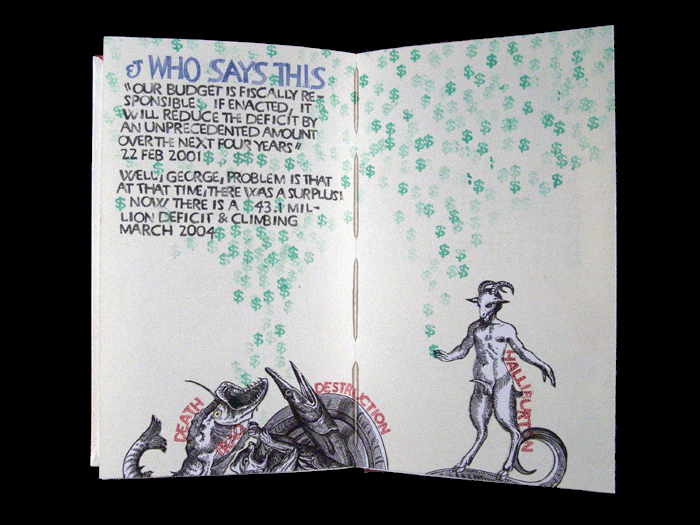 & WHO SAYS THIS
"OUR BUDGET IS FISCALLY RE-
SPONSIBLE. IF ENACTED, IT
WILL REDUCE THE DEFICIT BY
AN UNPRECEDENTED AMOUNT
OVER THE NEXT FOUR YEARS"
22 FEB 2001
WELL, GEORGE, PROBLEM IS THAT
AT THAT TIME, THERE WAS A SURPLUS!
NOW THERE IS A $43.1 MIL-
LION DEFICIT & CLIMBING
MARCH 2004
DEATH
DESTRUCTION
HALLIBURTON